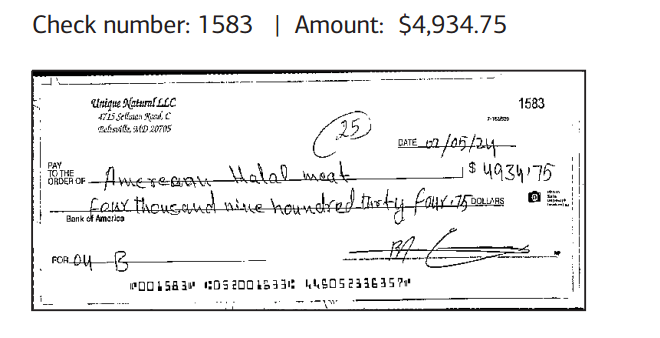 Check number: 1583 | Amount: $4,934.75
Unique Natural LLC
4715 Sellman Road, C
Beltsville, MD 20705
1583
25
DATE 02/05/24
PAY
TO THE
ORDER OF Amerecann Halal meat $ 4934.75
four thousand nine houndred thirty four.75 DOLLARS
Bank of America
FOR 04 B
⑈001583⑈ ⑆052001633⑆ 446052336357⑈